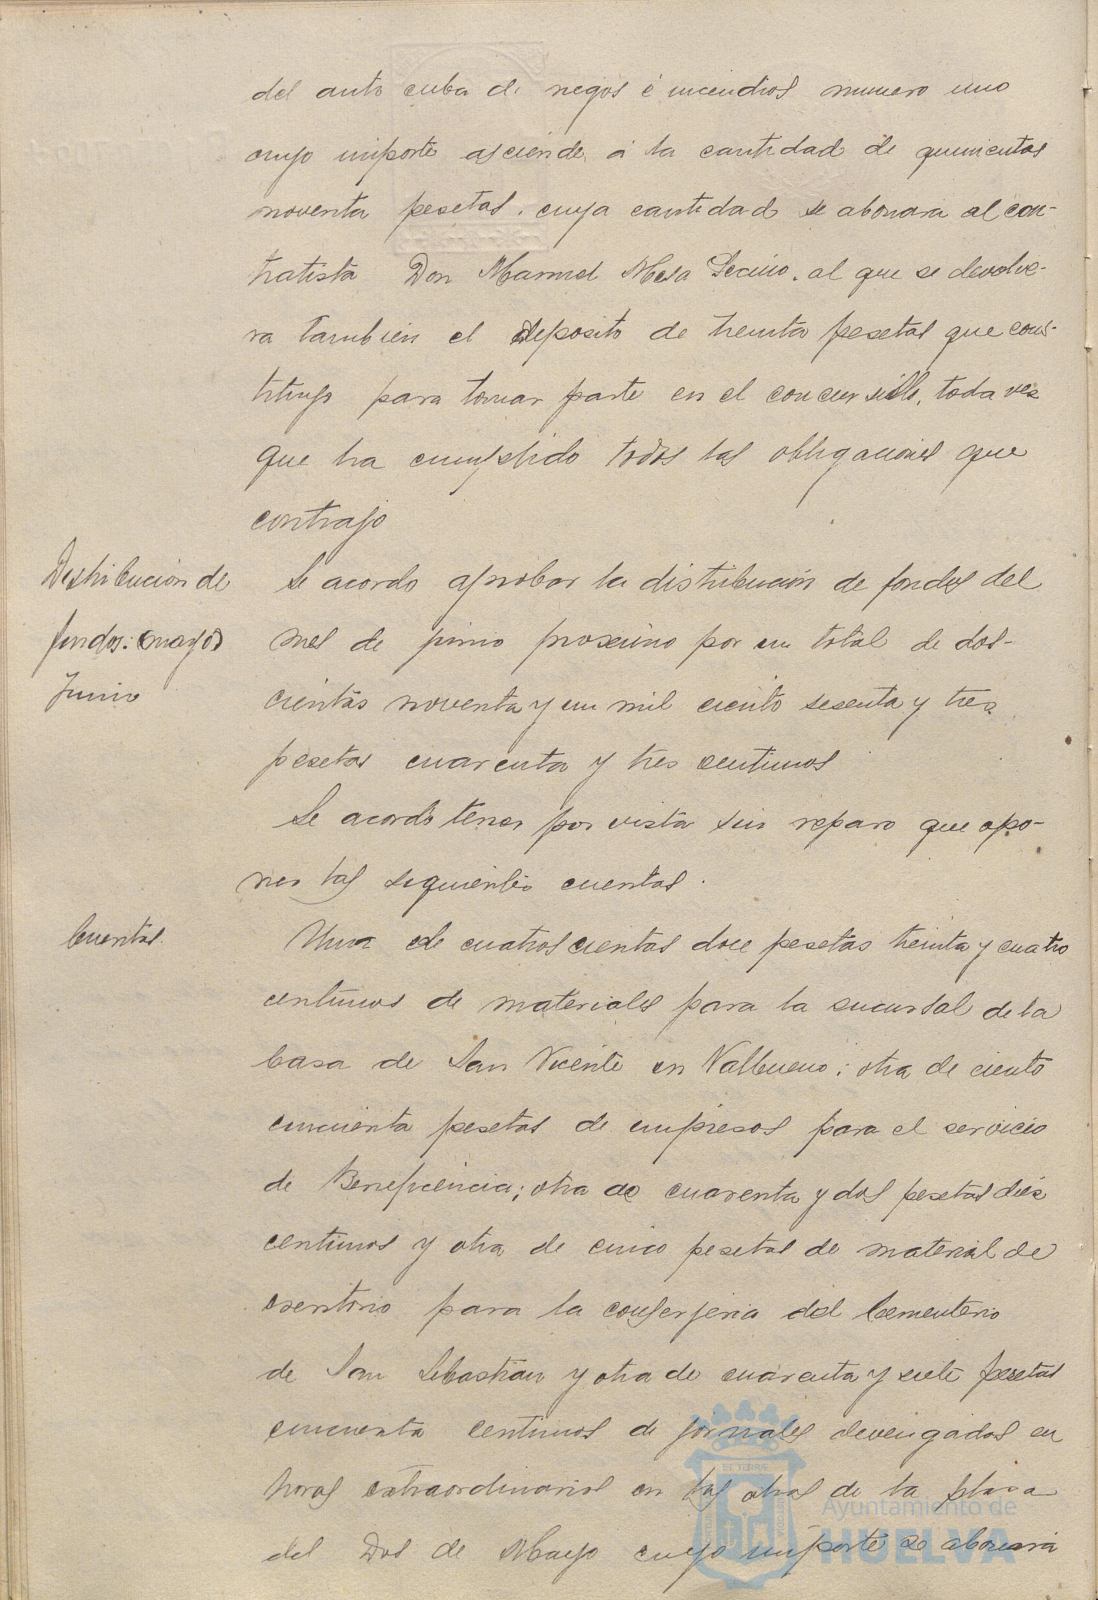 del auto cuba de riegos é incendios numero uno
cuyo importe asciende á la cantidad de quinientas
noventa pesetas, cuya cantidad se abonara al con-
tratista Don Manuel Mesa, al que se devolve-
ra tambien el deposito de treinta pesetas que cons-
tituyo para tomar parte en el concursillo, toda vez
que ha cumplido todos las obligaciones que
contrajo
Distribución de
fondos: mayo
Junio
Se acordo aprobar la distribución de fondos del
mes de junio proximo por un total de dos-
cientas noventa y un mil ciento sesenta y tres
pesetas cuarenta y tres centimos
Se acordo tener por vista sin reparo que opo-
ner las siguientes cuentas.
Cuentas.
Una de cuatroscientas doce pesetas treinta y cuatro
centimos de materiales para la sucursal de la
Casa de San Vicente en Valbueno; otra de ciento
cincuenta pesetas de impresos para el servicio
de Beneficencia; otra de cuarenta y dos pesetas diez
centimos y otra de cinco pesetas de material de
escritorio para la conserjeria del Cementerio
de San Sebastian y otra de cuarenta y siete pesetas
cincuenta centimos de jornales devengados en
horas extraordinarias en las obras de la plaza
del Dos de Mayo cuyo importe se abonara
Ayuntamiento de
HUELVA